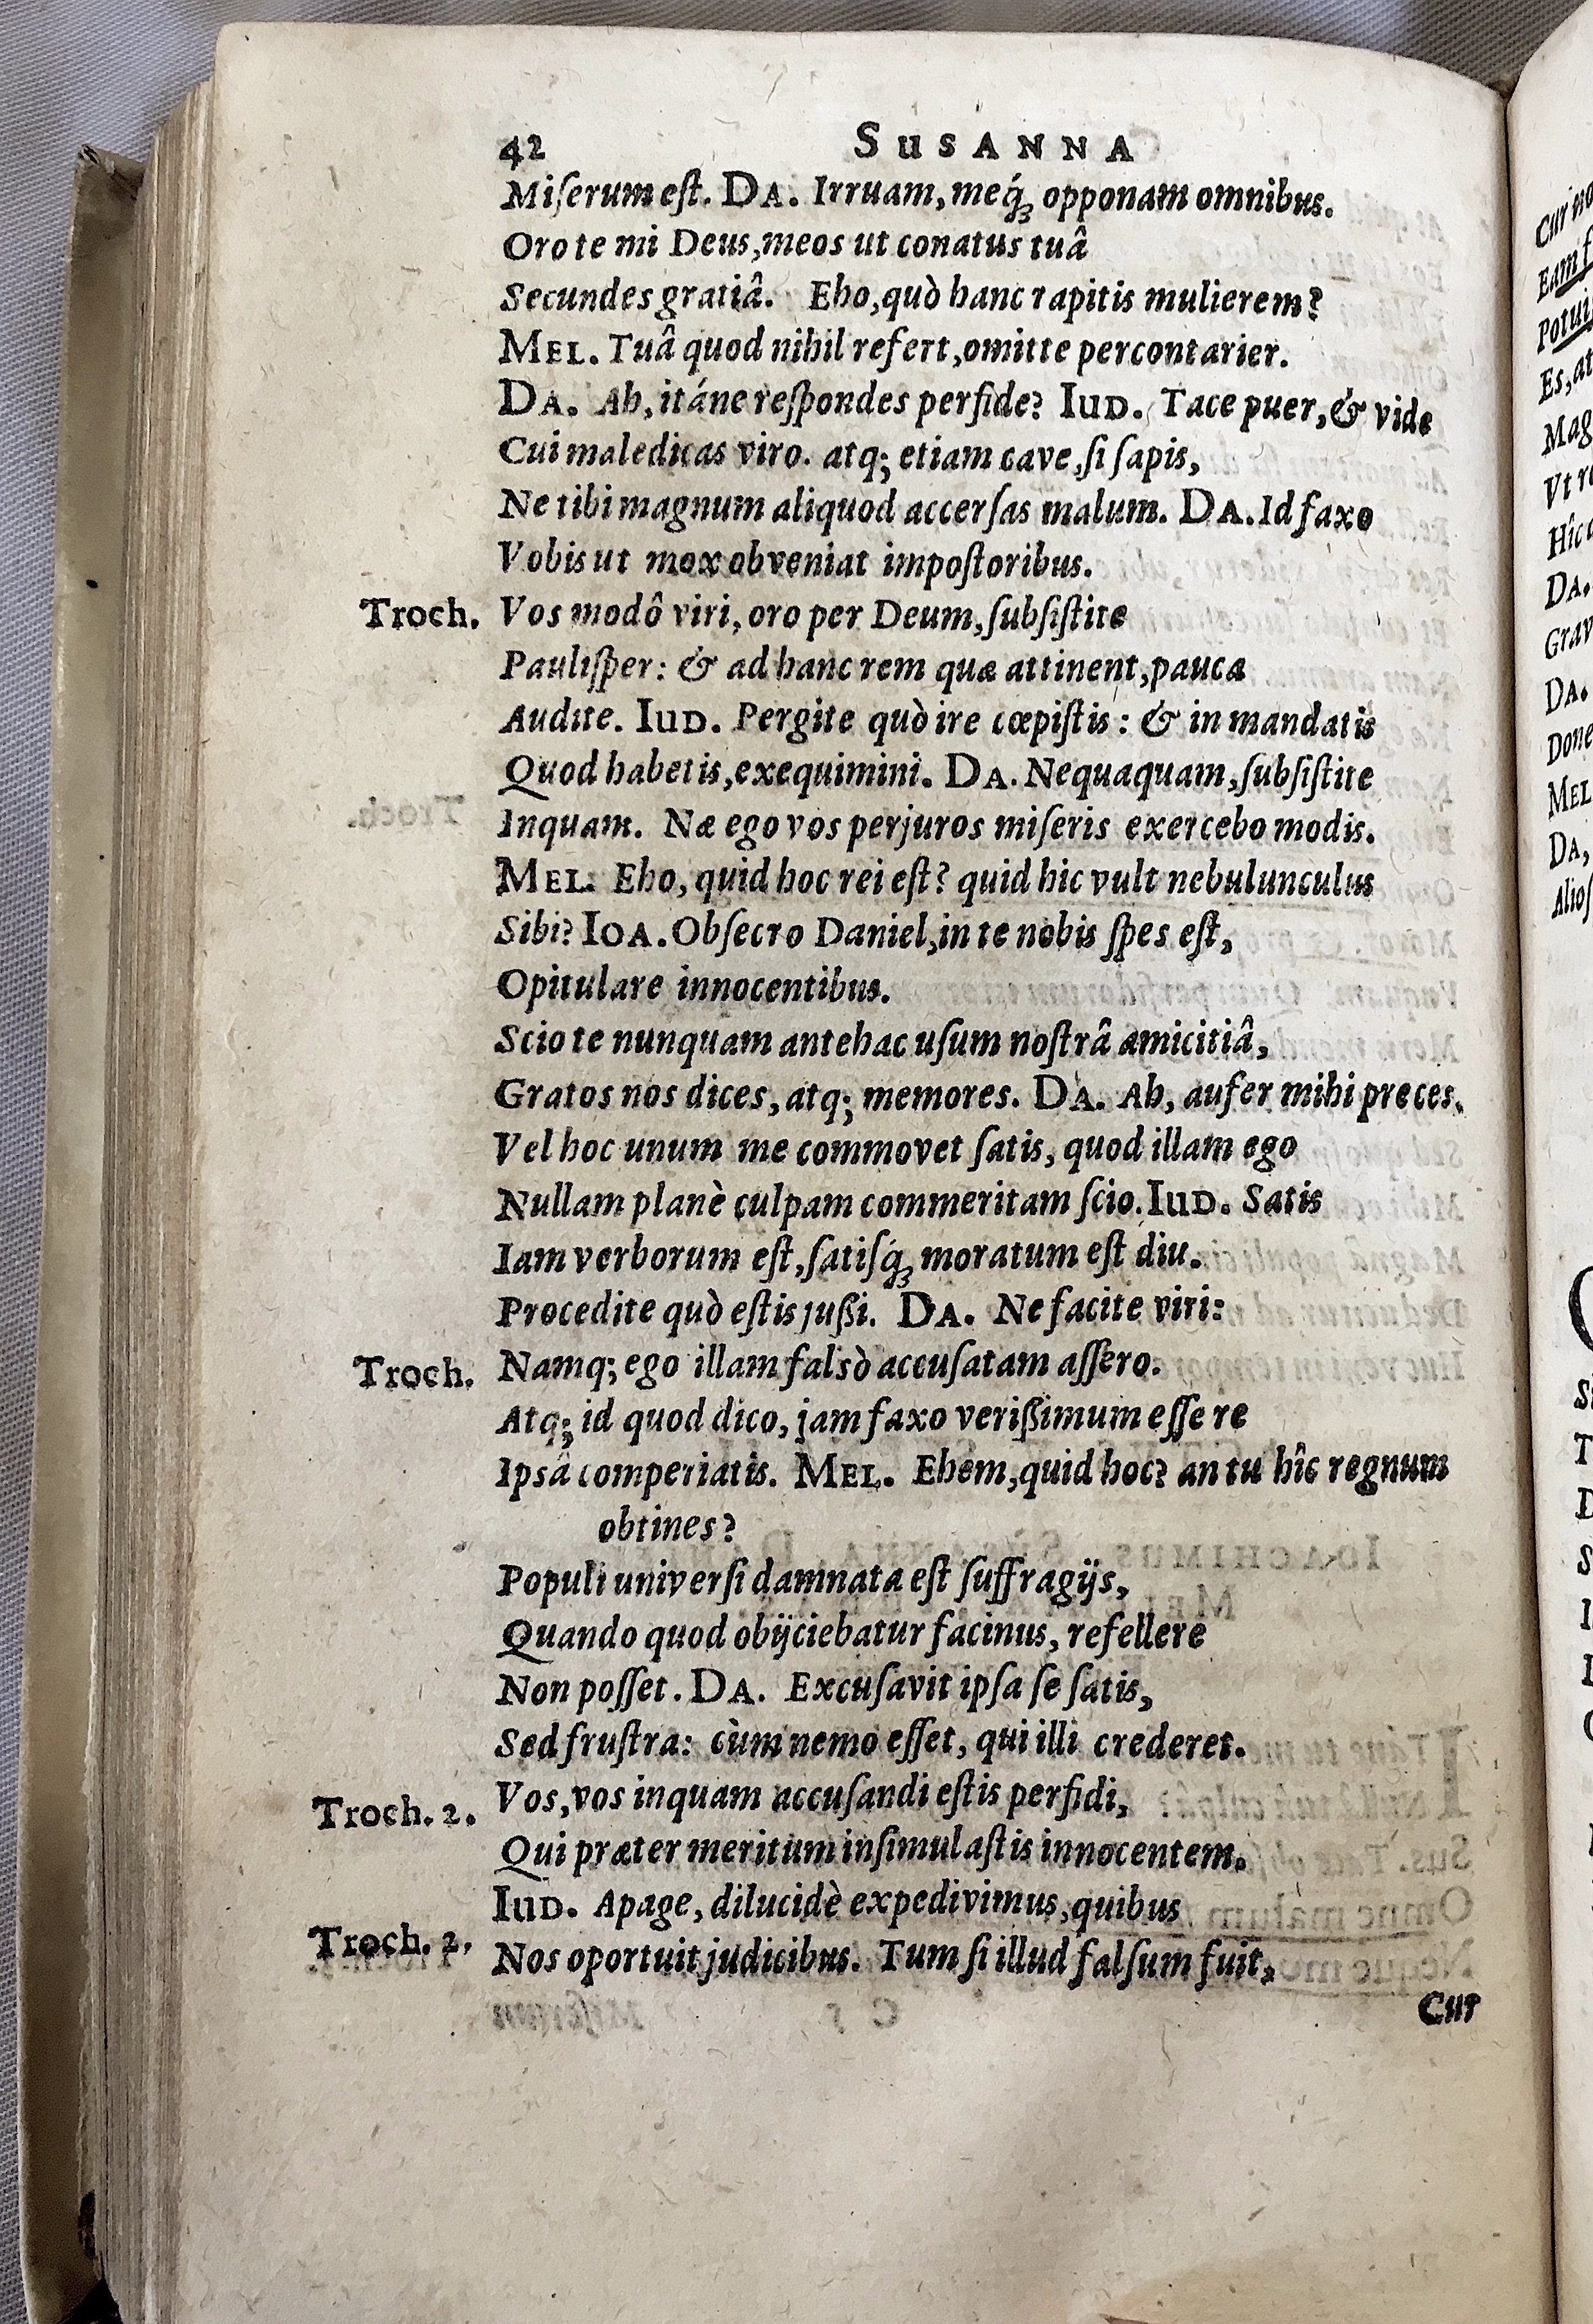 42 SUSANNA
Miserum est. DA. Irruam, meq́ꝫ opponam omnibus.
Oro te mi Deus, meos ut conatus tuâ
Secundes gratiâ. Eho, quò hanc rapitis mulierem?
MEL. Tuâ quod nihil refert, omitte percontarier.
DA. Ah, itáne respondes perfide? IUD. Tace puer, & vide
Cui maledicas viro. atq; etiam cave, si sapis,
Ne tibi magnum aliquod accersas malum. DA. Id faxo
Vobis ut mox obveniat impostoribus.
Troch. Vos modô viri, oro per Deum, subsistite
Paulisper: & ad hanc rem quæ attinent, pauca
Audite. IUD. Pergite quò ire cœpistis: & in mandatis
Quod habetis, exequimini. DA. Nequaquam, subsistite
Inquam. Næ ego vos perjuros miseris exercebo modis.
MEL. Eho, quid hoc rei est? quid hic vult nebulunculus
Sibi? IOA. Obsecro Daniel, in te nobis spes est,
Opitulare innocentibus.
Scio te nunquam antehac usum nostrâ amicitiâ,
Gratos nos dices, atq; memores. DA. Ah, aufer mihi preces.
Vel hoc unum me commovet satis, quod illam ego
Nullam planè culpam commeritam scio. IUD. Satis
Iam verborum est, satisq́ꝫ moratum est diu.
Procedite quò estis jußi. DA. Ne facite viri:
Troch. Namq; ego illam falsò accusatam assero.
Atq; id quod dico, jam faxo verißimum esse re
Ipsâ comperiatis. MEL. Ehem, quid hoc? an tu hîc regnum
obtines?
Populi universi damnata est suffragijs,
Quando quod obijciebatur facinus, refellere
Non posset. DA. Excusavit ipsa se satis,
Sed frustra: cùm nemo esset, qui illi crederet.
Troch. 2. Vos, vos inquam accusandi estis perfidi,
Qui præter meritum insimulastis innocentem.
IUD. Apage, dilucidè expedivimus, quibus
Troch. 2. Nos oportuit judicibus. Tum si illud falsum fuit,
Cur